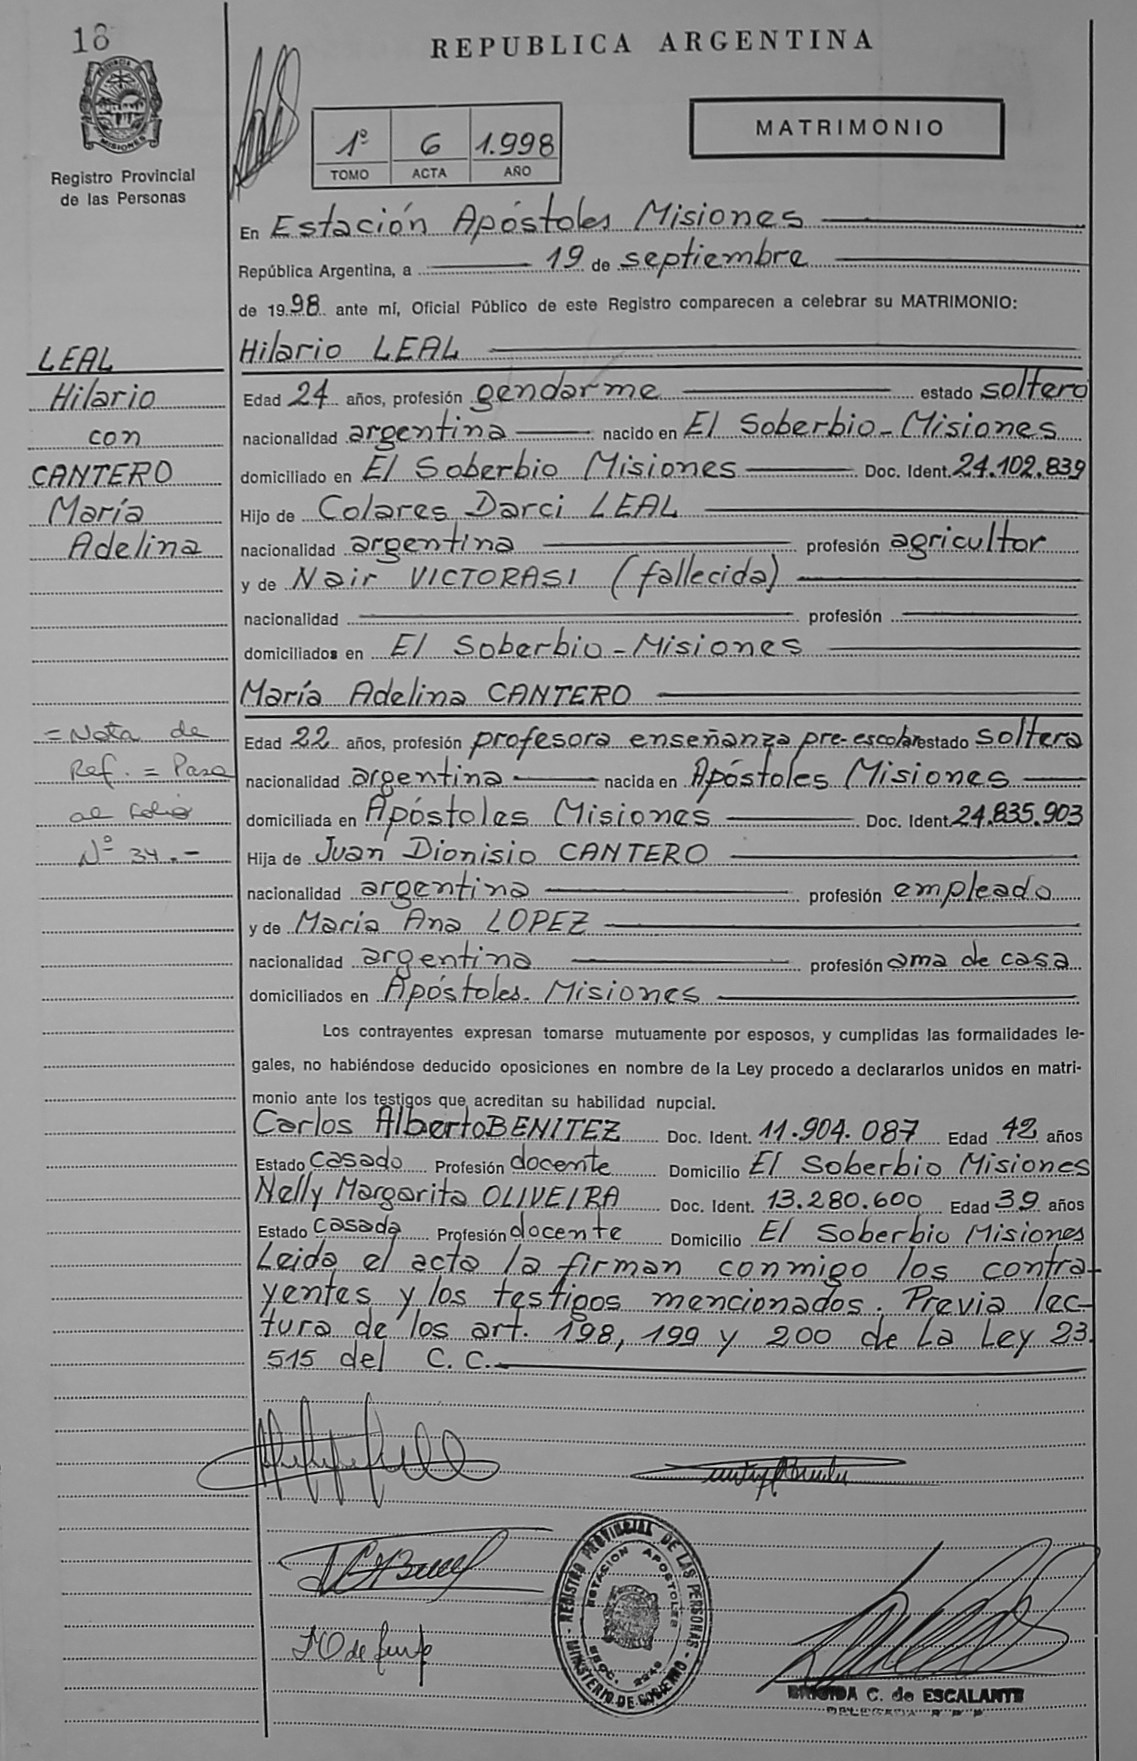 18
REPUBLICA ARGENTINA
MISIONES
Registro Provincial
de las Personas
1º 6 1.998
TOMO ACTA AÑO
MATRIMONIO
En Estación Apóstoles Misiones
República Argentina, a 19 de septiembre
de 1998 ante mí, Oficial Público de este Registro comparecen a celebrar su MATRIMONIO:
LEAL
Hilario
con
CANTERO
María
Adelina
Hilario LEAL
Edad 24 años, profesión gendarme estado soltero
nacionalidad argentina nacido en El Soberbio - Misiones
domiciliado en El Soberbio Misiones Doc. Ident. 24.102.839
Hijo de Colares Darci LEAL
nacionalidad argentina profesión agricultor
y de Nair VICTORASI (fallecida)
nacionalidad profesión
domiciliados en El Soberbio - Misiones
María Adelina CANTERO
= Nota de
Ref. = Pasa
al folio
Nº 34.-
Edad 22 años, profesión profesora enseñanza pre-escolar estado soltera
nacionalidad argentina nacida en Apóstoles Misiones
domiciliada en Apóstoles Misiones Doc. Ident. 24.835.903
Hija de Juan Dionisio CANTERO
nacionalidad argentina profesión empleado
y de María Ana LOPEZ
nacionalidad argentina profesión ama de casa
domiciliados en Apóstoles. Misiones
Los contrayentes expresan tomarse mutuamente por esposos, y cumplidas las formalidades le-
gales, no habiéndose deducido oposiciones en nombre de la Ley procedo a declararlos unidos en matri-
monio ante los testigos que acreditan su habilidad nupcial.
Carlos Alberto BENITEZ Doc. Ident. 11.904.087 Edad 42 años
Estado casado Profesión docente Domicilio El Soberbio Misiones
Nelly Margarita OLIVEIRA Doc. Ident. 13.280.600 Edad 39 años
Estado casada Profesión docente Domicilio El Soberbio Misiones
Leida el acta la firman conmigo los contra-
yentes y los testigos mencionados. Previa lec-
tura de los art. 198, 199 y 200 de La Ley 23.
515 del C. C.
REGISTRO PROVINCIAL DE LAS PERSONAS
ESTACION APOSTOLES
MINISTERIO DE GOBIERNO
BRIGIDA C. de ESCALANTE
DELEGADA